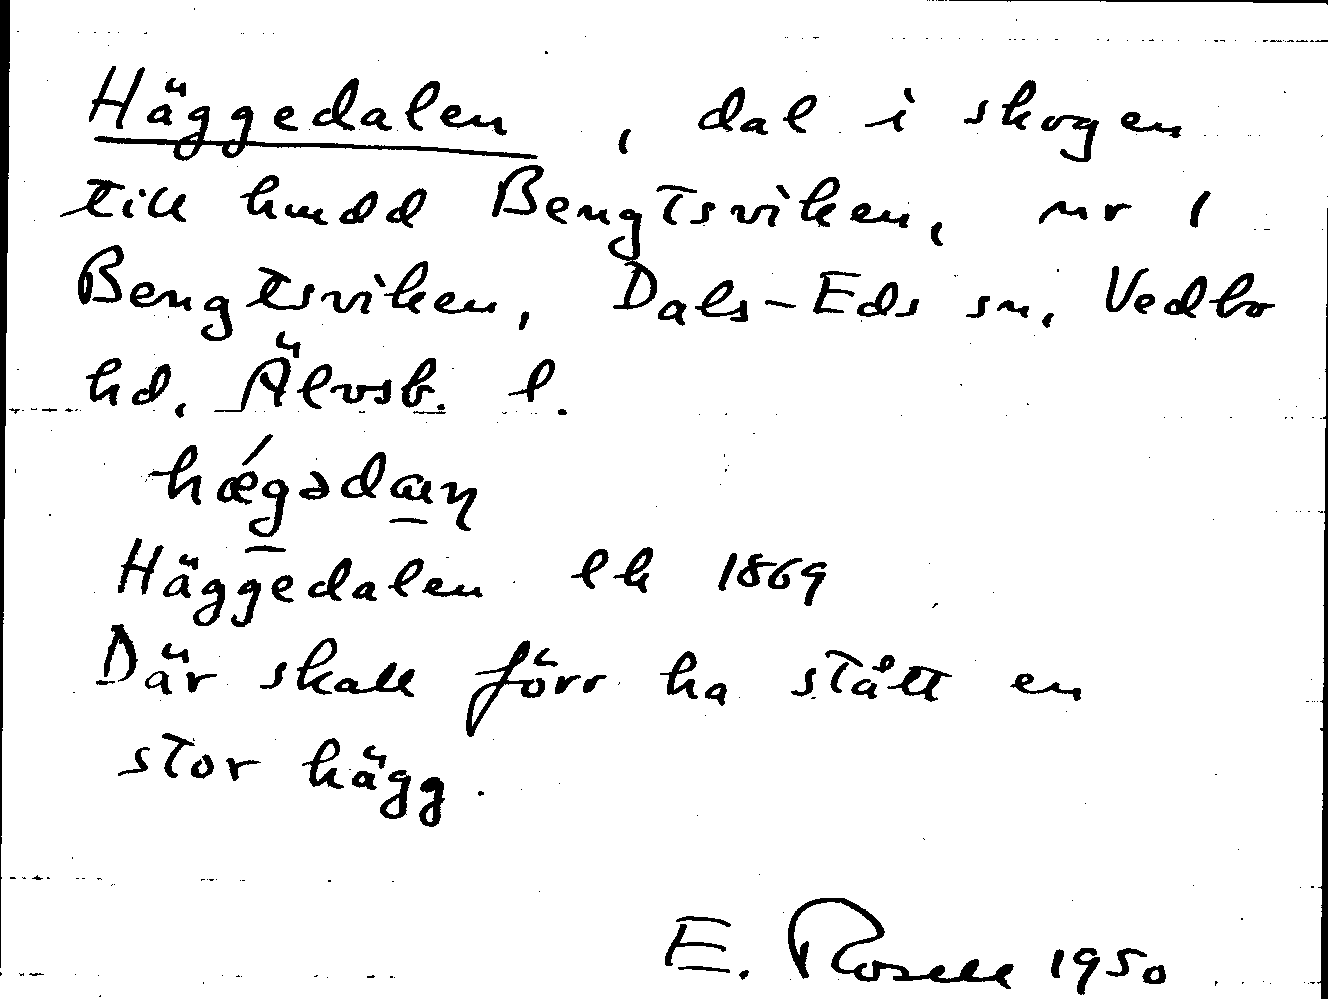 Häggedalen, dal i skogen
till hmdd Bengtsviken, nr 1
Bengtsviken, Dals-Eds sn, Vedbo
hd, Älvsb. l.
hǽgədaɳ
Häggedalen lk 1869
Där skall förr ha stått en
stor hägg.
E. Rosell 1950